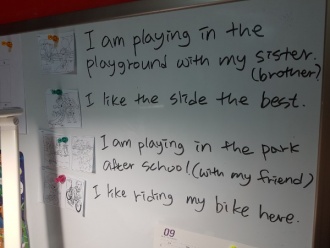 I am playing in the
playground with my sister.
(brother?)
I like the slide the best.
I am playing in the park
after school. (with my friend)
I like riding my bike here.
09